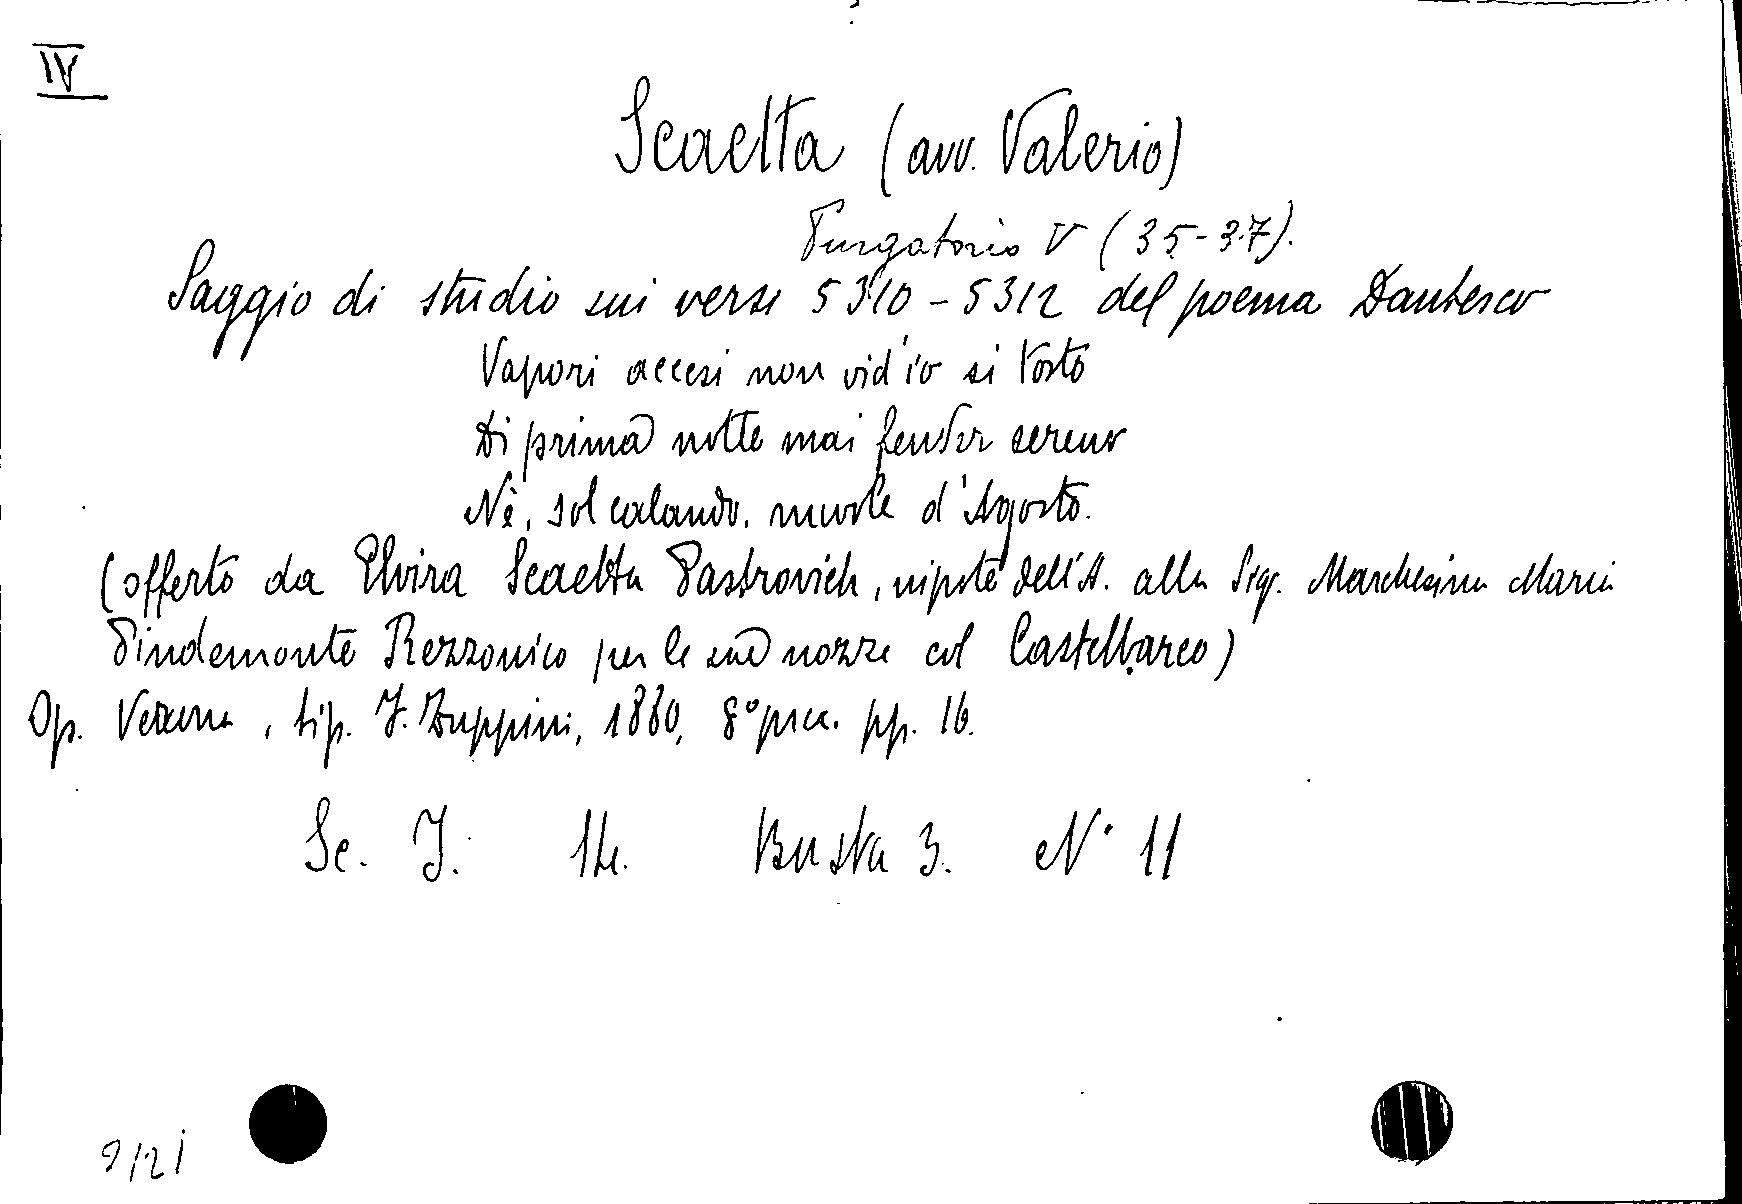 IV
Scaetta (avv. Valerio)
Purgatorio V (35-37).
Saggio di studio sui versi 5310-5312 del poema Dantesco
Vapori accesi non vid'io si tosto
Di prima notte mai fender sereno
Nè, sol calando, nuvole d'Agosto.
(offerto da Elvira Scaetta Pastrovich, nipote dell'A. alla Sigr. Marchesina Maria
Pindemonte Rezzonico per le sue nozze col Castelbarco)
Op. Verona, tip. G. Zuppini, 1880, 8° picc. pp. 16.
Sc. J. 14. Busta 3. N° 11
9/21